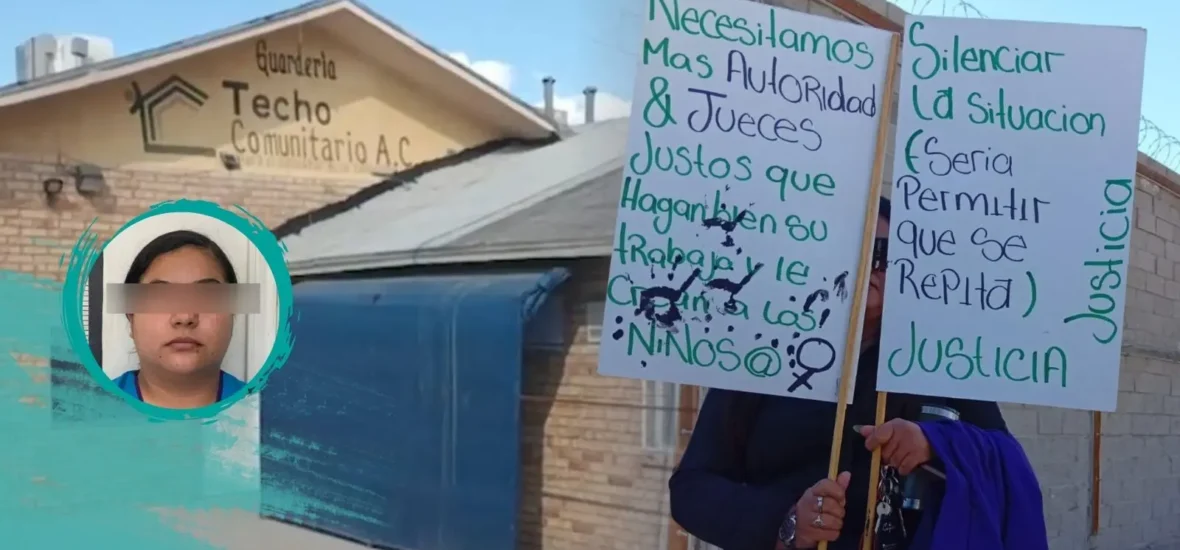 Guardería
Techo
Comunitario A.C.
Necesitamos
Mas AUtoRidad
& JUeces
Justos que
Hagan bien su
tRabaja y le
CREan a los
NIÑOS@ ♀
Silenciar
La Situacion
(Seria
Permitir
que se
Repita)
JUSTICIA
Justicia